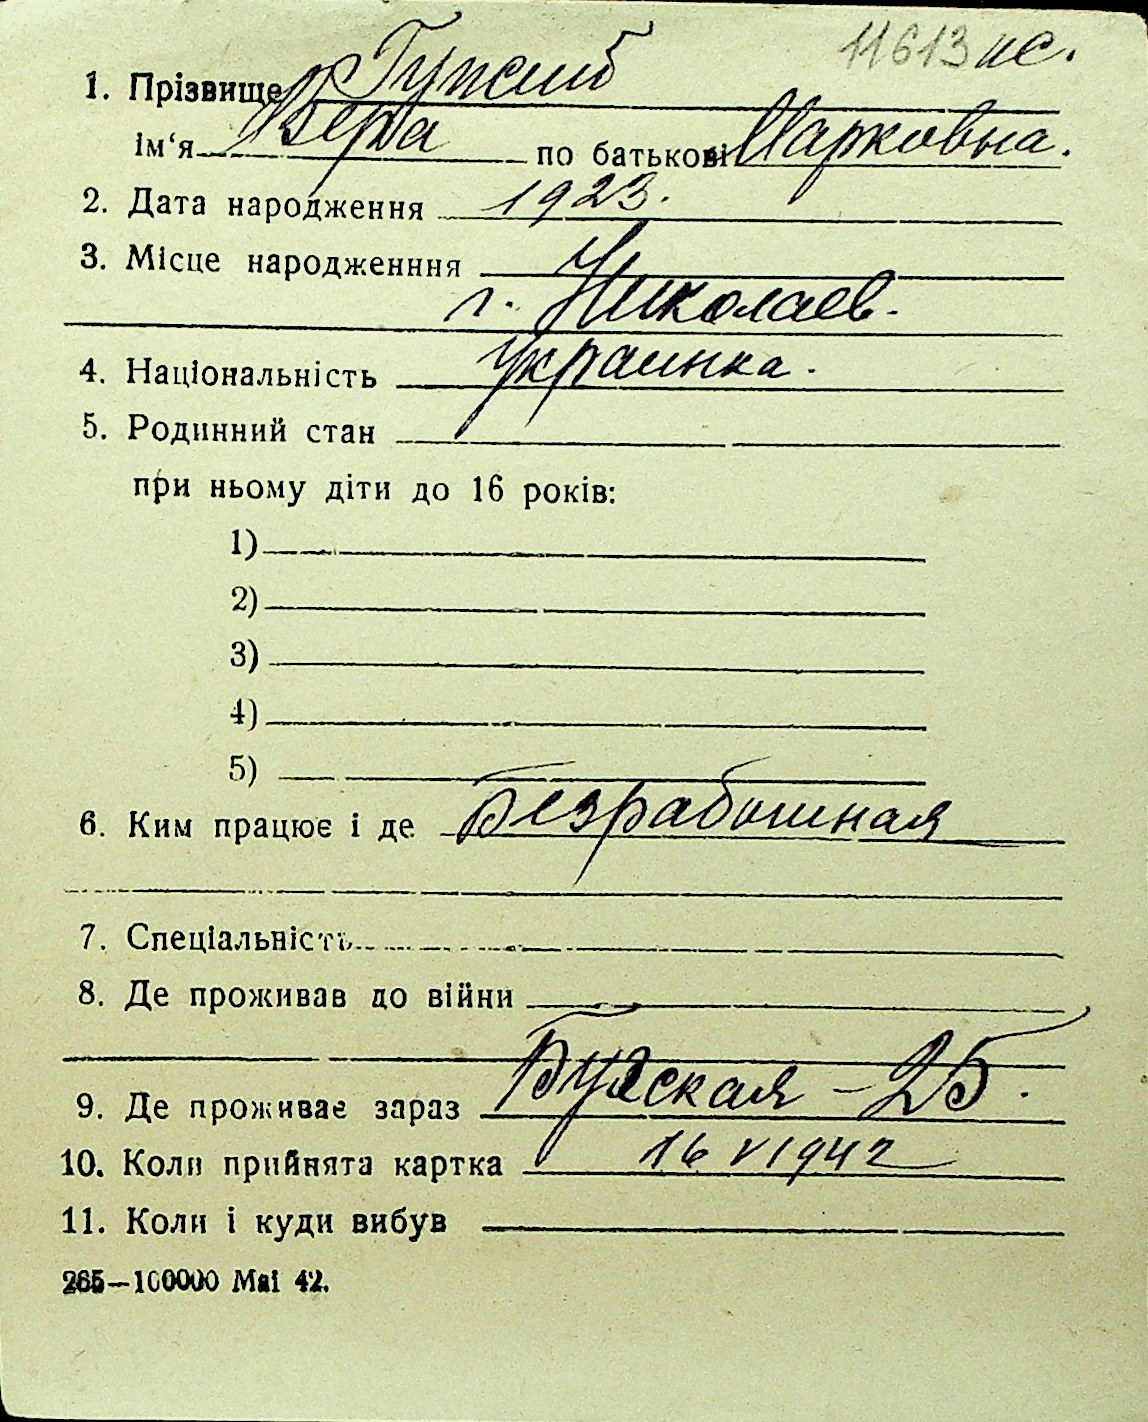 11613 пс.
1. Прізвище
Ім‘я Вера по батькові Марковна.
2. Дата народження 1923.
3. Місце народженння
г. Николаев.
4. Національність украинка.
5. Родинний стан
при ньому діти до 16 років:
1)
2)
3)
4)
5)
6. Ким працює і де Безработная
7. Спеціальність
8. Де проживав до війни
9. Де проживає зараз Бугская – 25.
10. Коли прийнята картка 16 V 1942
11. Коли і куди вибув
265—100000 Маі 42.